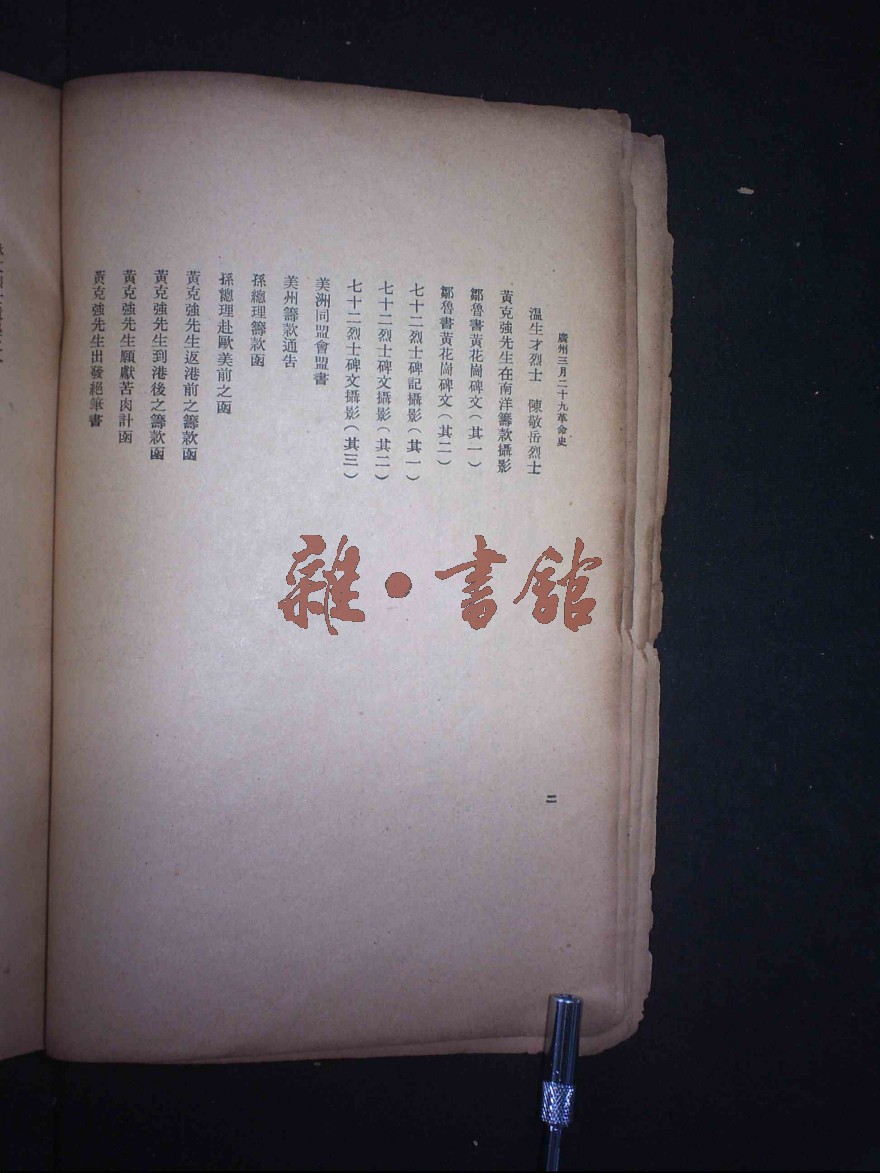 廣州三月二十九革命史
溫生才烈士　陳敬岳烈士
黃克強先生在南洋籌款攝影
鄒魯書黃花崗碑文（其一）
鄒魯書黃花崗碑文（其二）
七十二烈士碑記攝影（其一）
七十二烈士碑文攝影（其二）
七十二烈士碑文攝影（其三）
美洲同盟會盟書
美州籌款通告
孫總理籌款函
孫總理赴歐美前之函
黃克強先生返港前之籌款函
黃克強先生到港後之籌款函
黃克強先生願獻苦肉計函
黃克強先生出發絕筆書
二
雜·書館